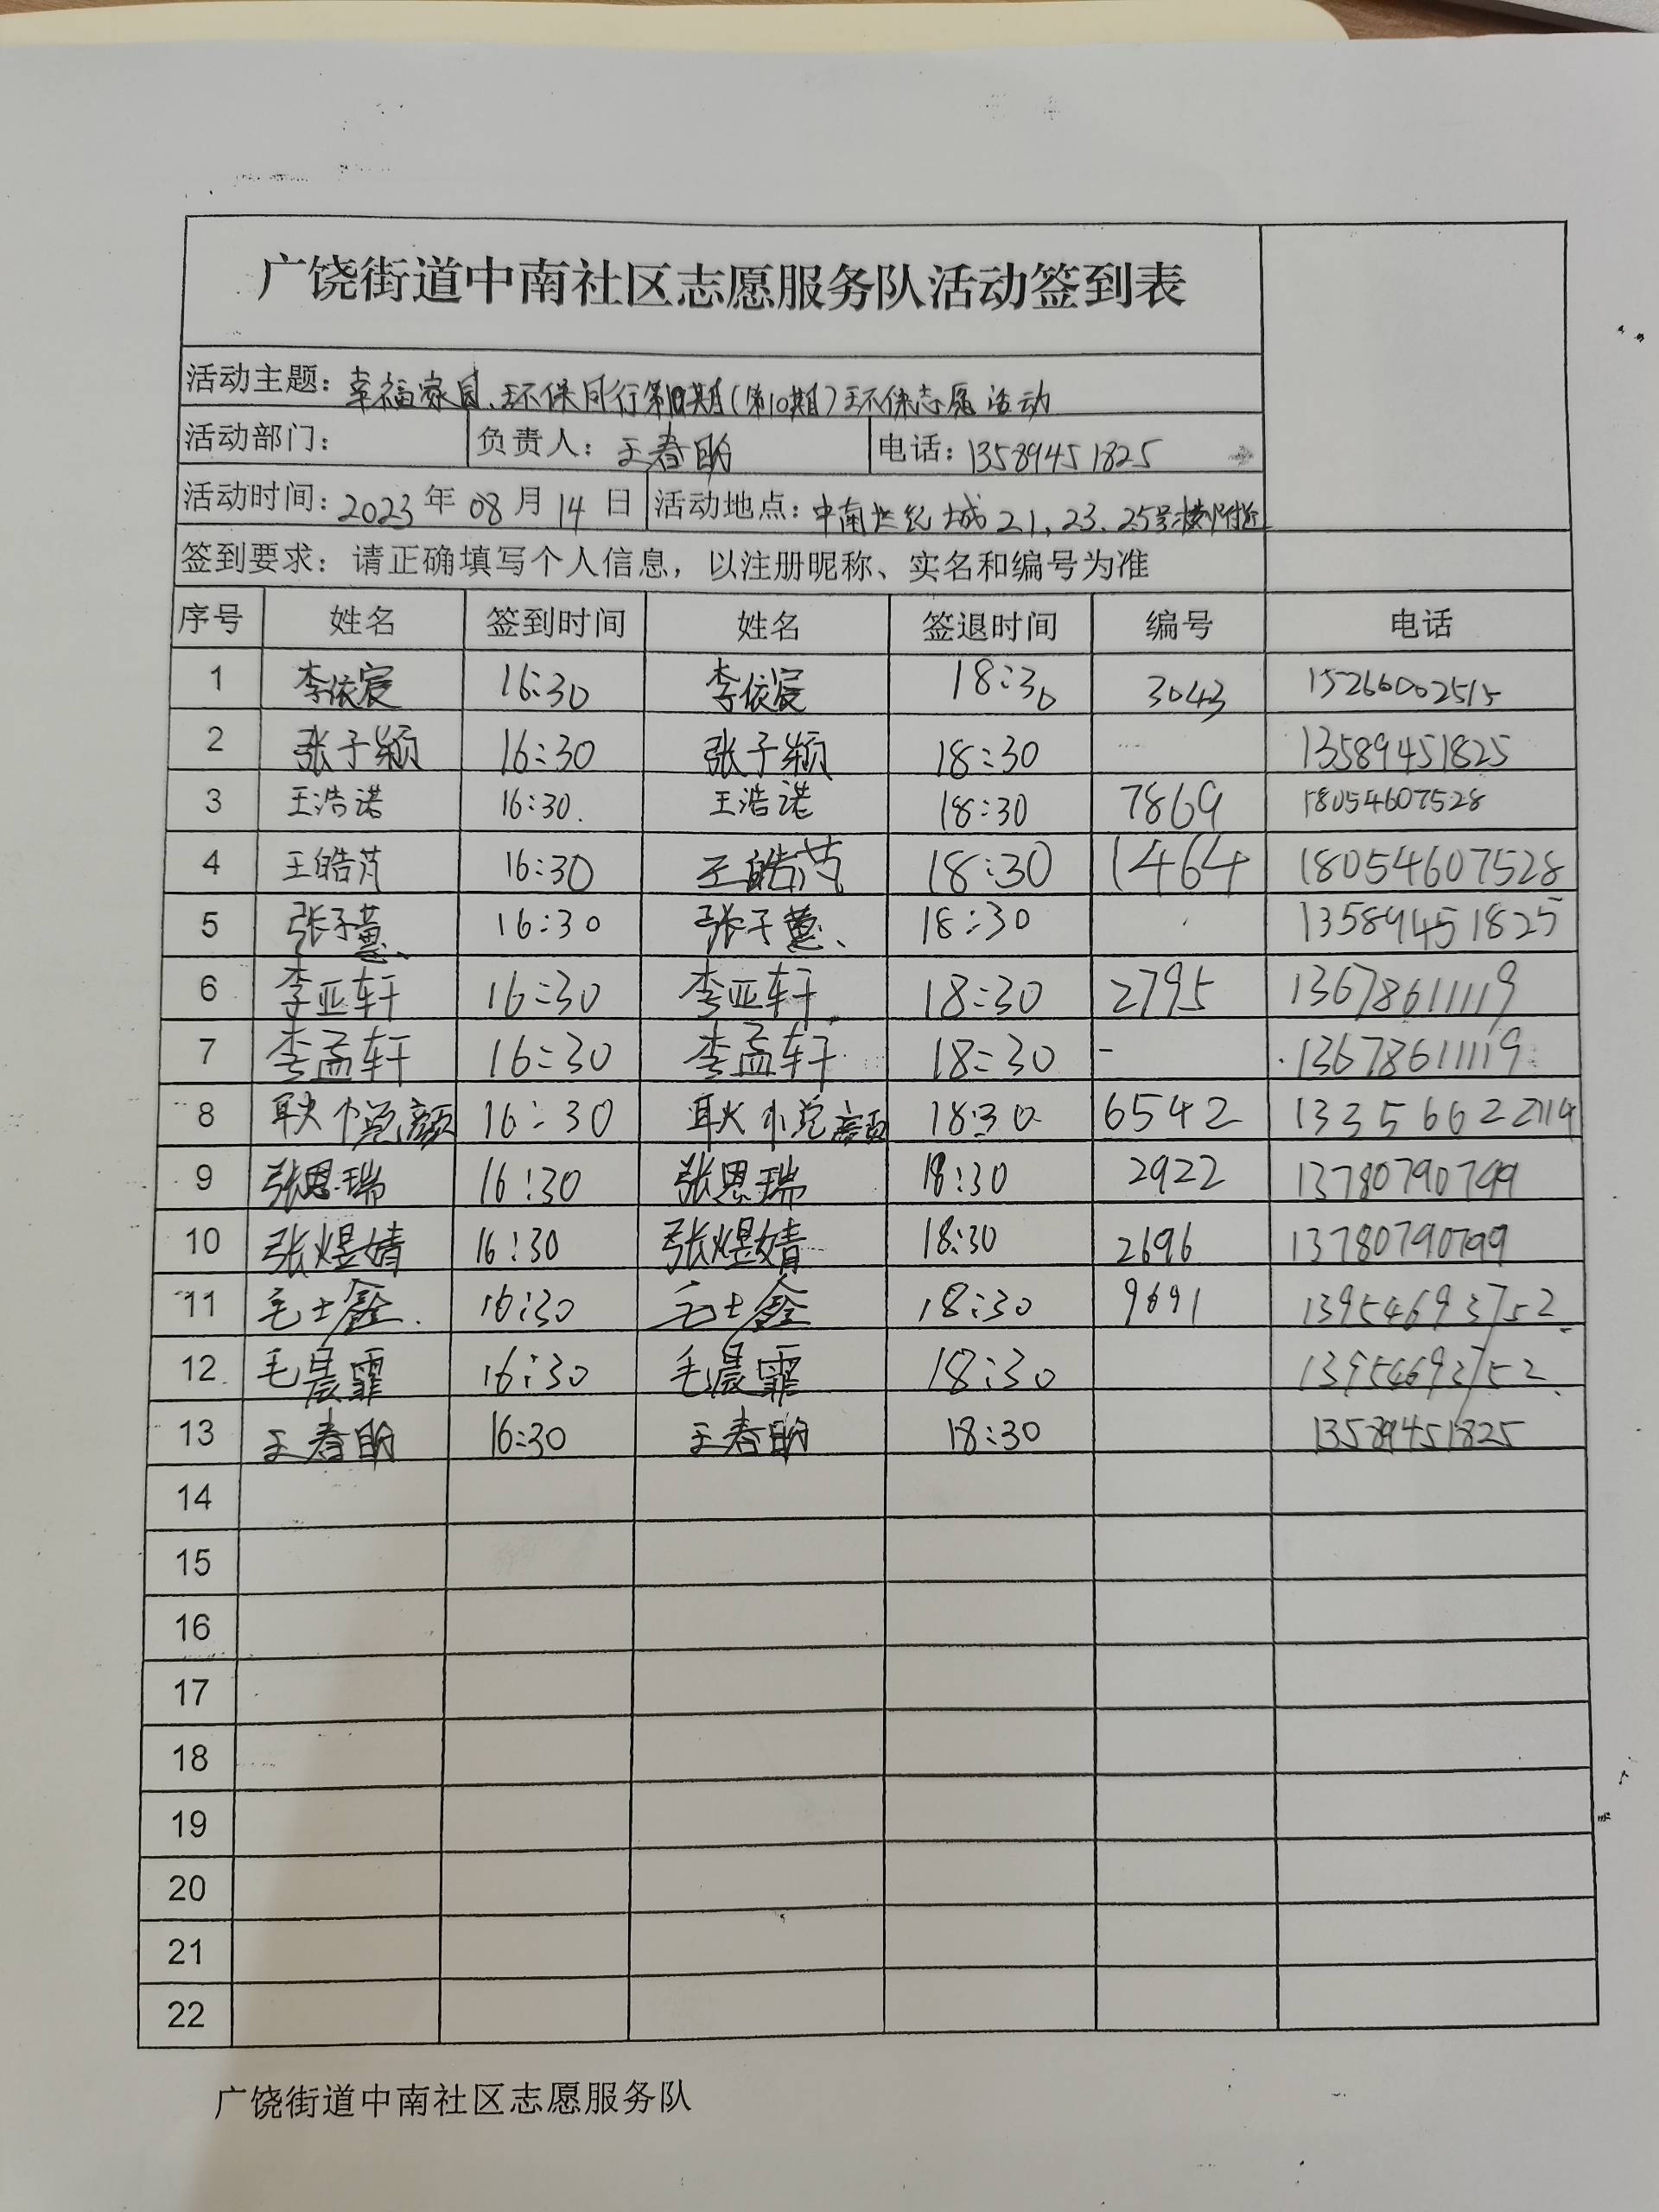 广饶街道中南社区志愿服务队活动签到表
活动主题：幸福家园、环保同行第10期（第10期）环保志愿活动
活动部门： 负责人：王春 电话：13589451825
活动时间：2023年08月14日 活动地点：中南世纪城21,23.25号楼附近
签到要求：请正确填写个人信息，以注册昵称、实名和编号为准
序号 姓名 签到时间 姓名 签退时间 编号 电话
1 李依宸 16:30 李依宸 18:30 3043 15266002515
2 张子颖 16:30 张子颖 18:30 13589451825
3 王浩诺 16:30. 王浩诺 18:30 7869 18054607528
4 王皓芃 16:30 王皓芃 18:30 1464 18054607528
5 张子蕙、 16:30 张子蕙、 18:30 13589451825
6 李亚轩 16:30 李亚轩 18:30 2795 13678611119
7 李孟轩 16:30 李孟轩 18:30 - 13678611119
8 16:30 18:30 6542
9 张恩瑞 16:30 张恩瑞 18:30 2922 13780790799
10 张煜婧 16:30 张煜婧 18:30 2696 13780790799
11 毛士鑫. 16:30 毛士鑫 18:30 9691 13954693752
12 毛晨霏 16:30 毛晨霏 18:30 13954693752
13 王春 16:30 王春 18:30 13589451825
14
15
16
17
18
19
20
21
22
广饶街道中南社区志愿服务队